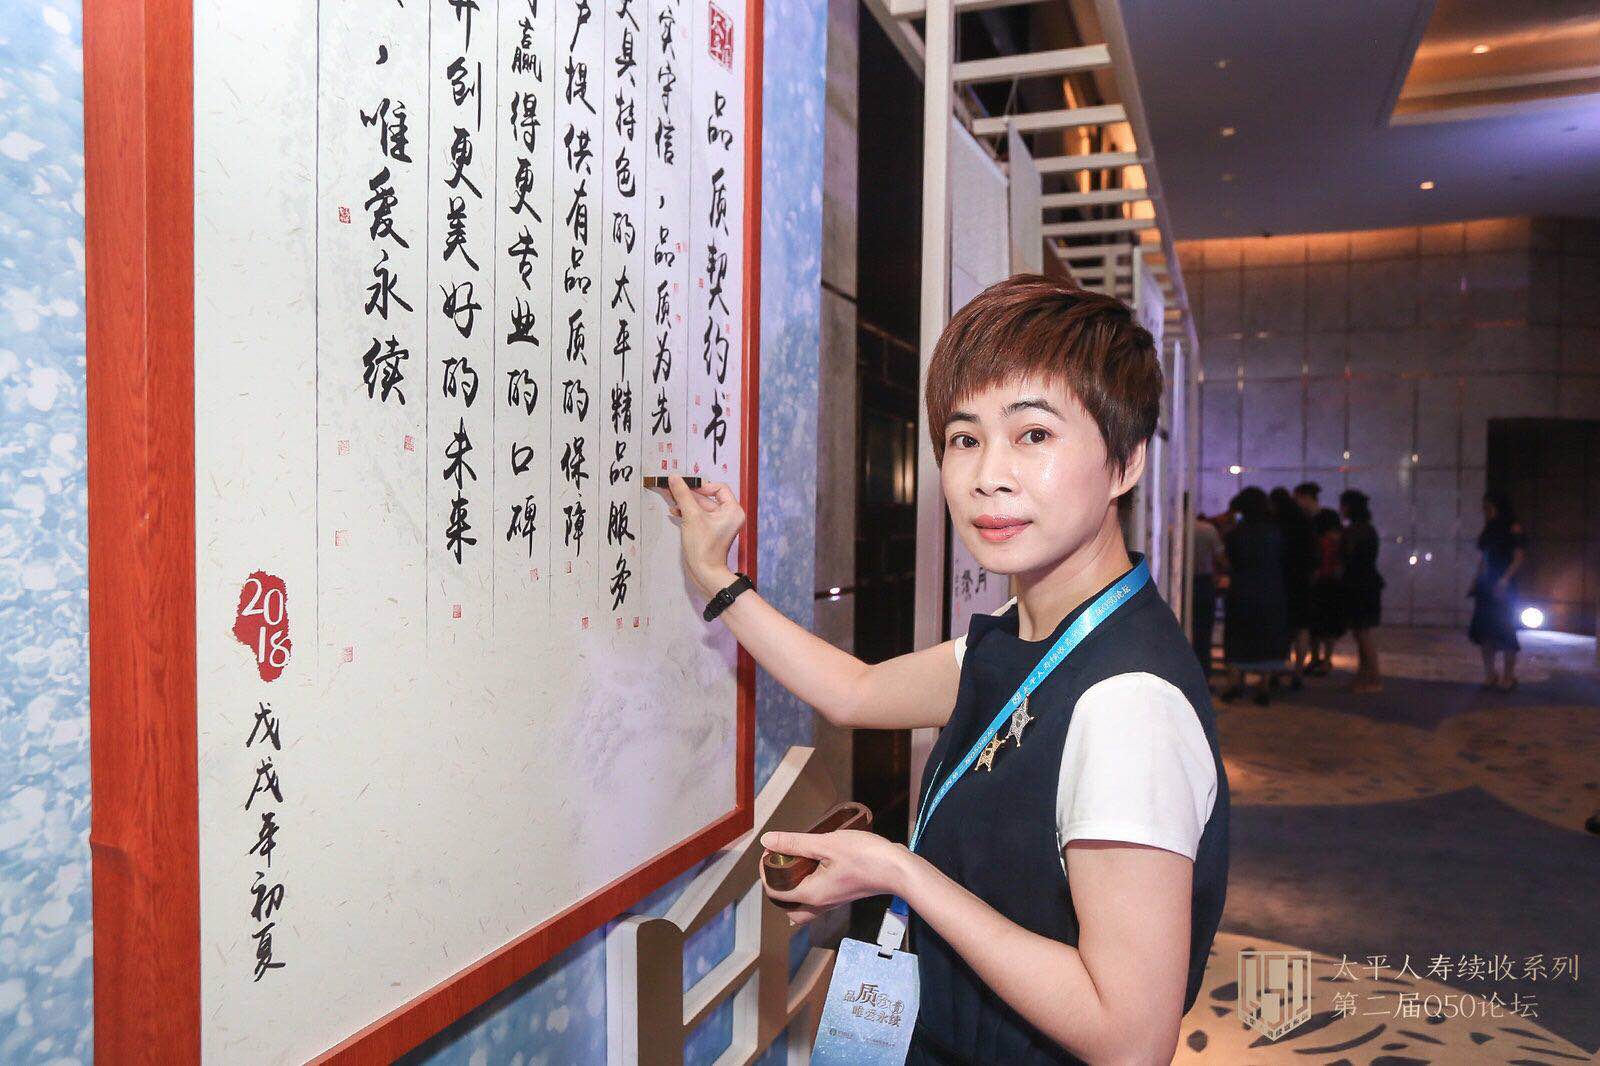 品质契约书
实守信，品质为先
具持色的太平精品服务
户提供有品质的保障
赢得更专业的口碑
并创更美好的未来
，唯爱永续
2018
戊戌年初夏
太平人寿续收系列
第二届Q50论坛
品质
唯爱永续
Q50
太平人寿续收系列
第二届Q50论坛